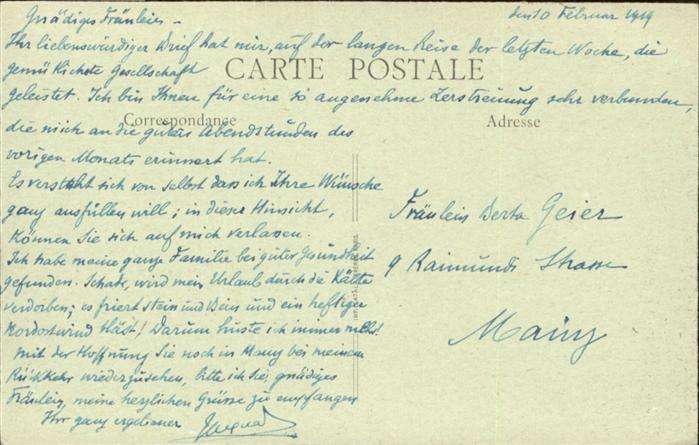 den 10 Februar 1919
Gnädiges Fräulein –
Ihr liebenswürdiger Brief hat mir, auf der langen Reise der letzten Woche, die
gemütlichste Gesellschaft
CARTE POSTALE
geleistet. Ich bin Ihnen für eine so angenehme Zerstreuung sehr verbunden,
Correspondance
Adresse
die mich an die guten Abendstunden des
vorigen Monats erinnert hat.
Es versteht sich von selbst dass ich Ihre Wünsche
ganz ausfüllen will; in dieser Hinsicht,
können Sie sich auf mich verlassen.
Ich habe meine ganze Familie bei guter Gesundheit
gefunden. Schade, wird mein Urlaub durch die Kälte
verdorben; es friert Stein und Bein und ein heftiger
Nordostwind bläst! Darum huste ich immer mehr!
Mit der Hoffnung Sie noch in Mainz bei meinem
Rückkehr wiederzusehen, bitte ich Sie, gnädiges
Fräulein, meine herzlichen Grüsse zu empfangen
Ihr ganz ergebener
Fräulein Berta Geier
9 Raimundi Strasse
Mainz